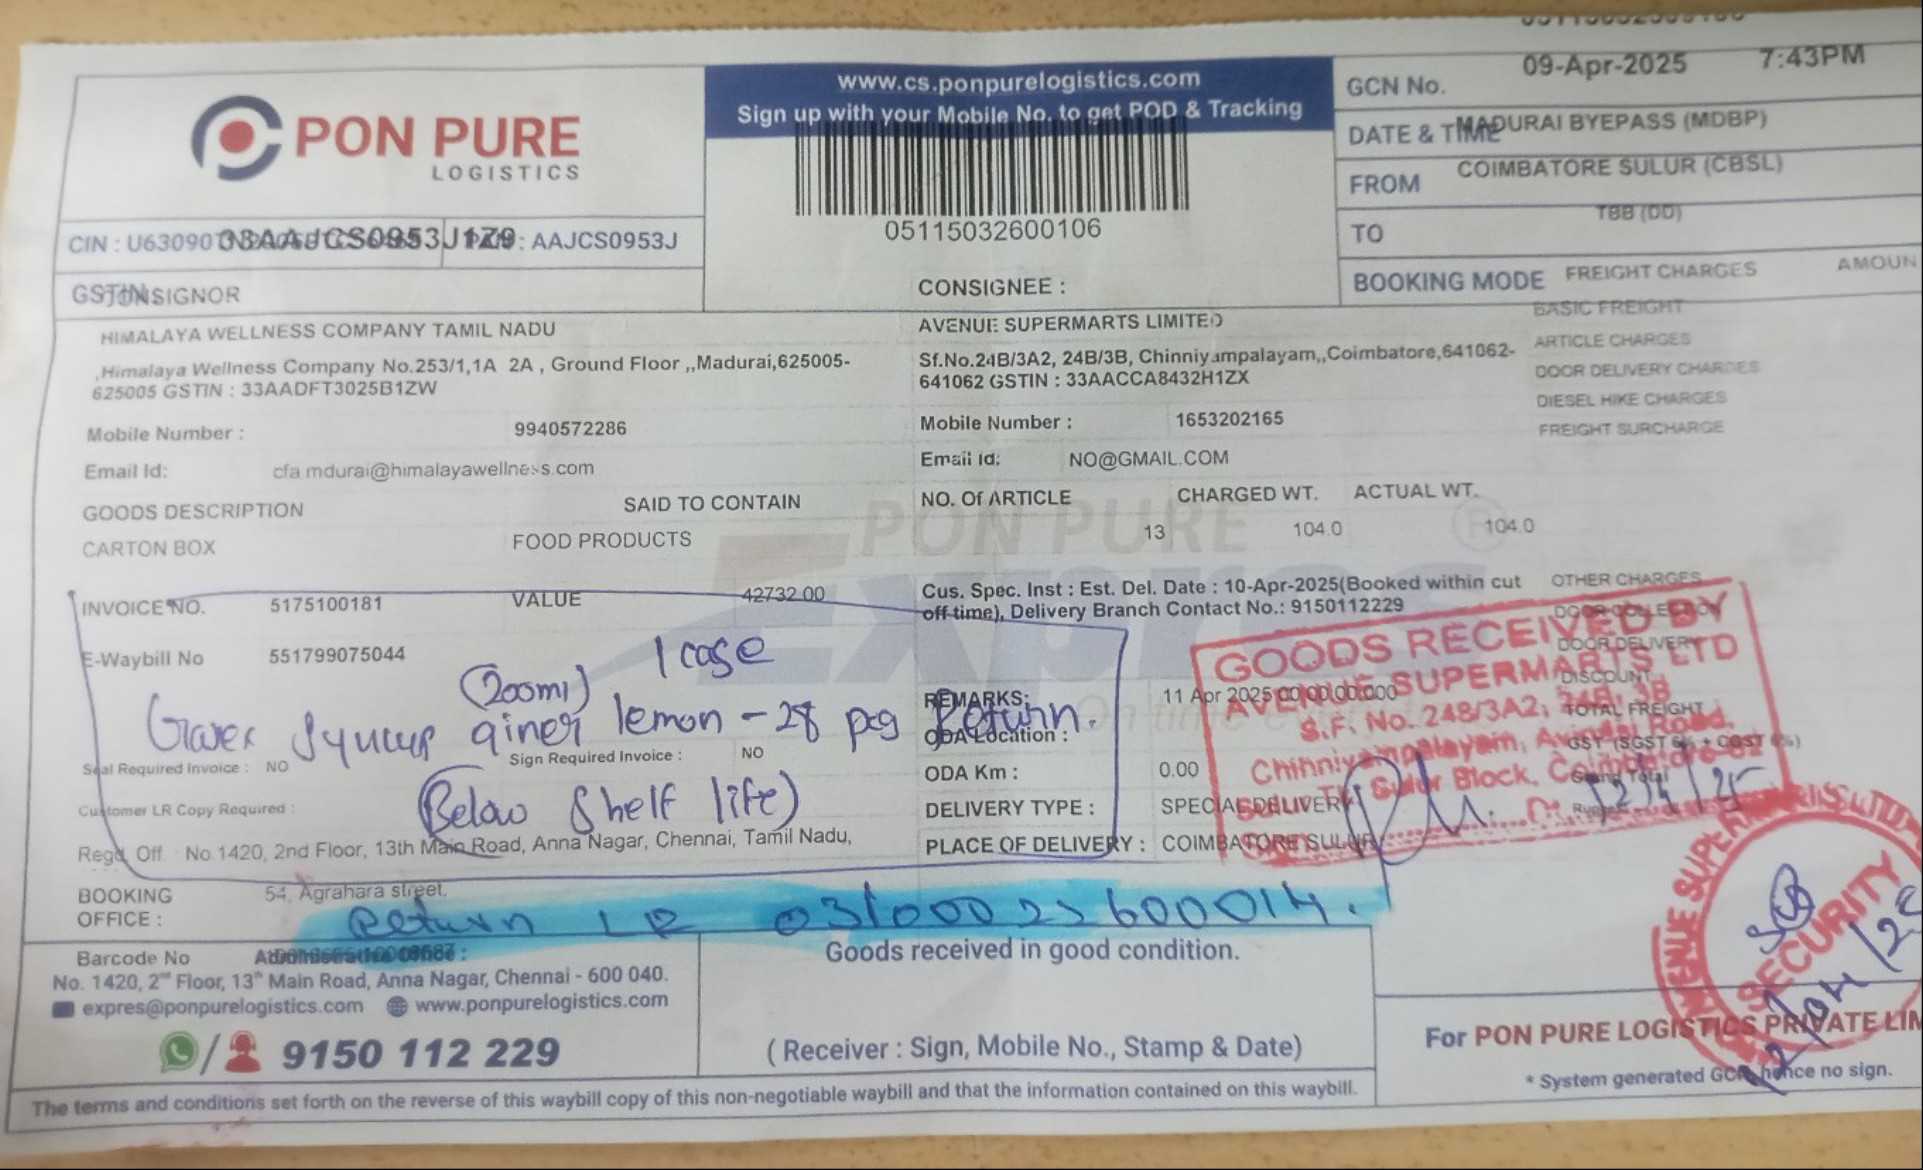 09-Apr-2025 7:43PM
www.cs.ponpurelogistics.com
Sign up with your Mobile No. to get POD & Tracking
GCN No.
PON PURE
LOGISTICS
DATE & TIME MADURAI BYEPASS (MDBP)
FROM COIMBATORE SULUR (CBSL)
05115032600106
TO TBB (DD)
CIN : U63090 33AAJCS0953J1Z9 : AAJCS0953J
BOOKING MODE FREIGHT CHARGES AMOUN
GSTIN CONSIGNOR
CONSIGNEE :
BASIC FREIGHT
HIMALAYA WELLNESS COMPANY TAMIL NADU
AVENUE SUPERMARTS LIMITED
ARTICLE CHARGES
,Himalaya Wellness Company No.253/1,1A 2A , Ground Floor ,,Madurai,625005-
625005 GSTIN : 33AADFT3025B1ZW
Sf.No.24B/3A2, 24B/3B, Chinniyampalayam,,Coimbatore,641062-
641062 GSTIN : 33AACCA8432H1ZX
DOOR DELIVERY CHARGES
DIESEL HIKE CHARGES
FREIGHT SURCHARGE
Mobile Number : 9940572286
Mobile Number : 1653202165
Email Id: cfa.mdurai@himalayawellness.com
Email Id: NO@GMAIL.COM
GOODS DESCRIPTION SAID TO CONTAIN
NO. Of ARTICLE CHARGED WT. ACTUAL WT.
CARTON BOX FOOD PRODUCTS
13 104.0 104.0
PON PURE
Express
On time
INVOICE NO. 5175100181 VALUE 42732.00
Cus. Spec. Inst : Est. Del. Date : 10-Apr-2025(Booked within cut
off time), Delivery Branch Contact No.: 9150112229
OTHER CHARGES
DOOR COLLECTION
DOOR DELIVERY
DISCOUNT
TOTAL FREIGHT
GST (SGST 6% + CGST 6%)
Grand Total
E-Waybill No 551799075044
1 case
(200ml)
lemon - 28 pcs Return.
REMARKS: 11 Apr 2025 00.00.00.000
ODA Location :
Seal Required Invoice : NO
Sign Required Invoice : NO
ODA Km : 0.00
Customer LR Copy Required :
(Below Shelf life)
DELIVERY TYPE : SPECIAL DELIVERY
PLACE OF DELIVERY : COIMBATORE SULUR
GOODS RECEIVED BY
AVENUE SUPERMARTS LTD
S.F. No. 24B/3A2, 24B, 3B
Chinniyampalayam, Avinashi Road,
Sulur Block, Coimbatore
Regd. Off No.1420, 2nd Floor, 13th Main Road, Anna Nagar, Chennai, Tamil Nadu,
BOOKING
OFFICE :
54, Agrahara street,
Return LR
SECURITY
Barcode No
Goods received in good condition.
No. 1420, 2nd Floor, 13th Main Road, Anna Nagar, Chennai - 600 040.
expres@ponpurelogistics.com www.ponpurelogistics.com
9150 112 229
( Receiver : Sign, Mobile No., Stamp & Date)
For PON PURE LOGISTICS PRIVATE LIM
* System generated GCN, hence no sign.
The terms and conditions set forth on the reverse of this waybill copy of this non-negotiable waybill and that the information contained on this waybill.